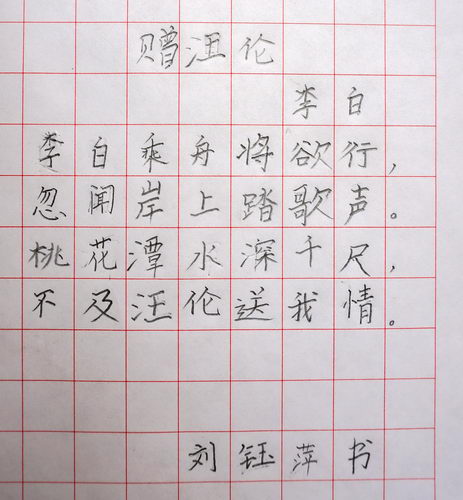 赠汪伦
李白
李白乘舟将欲行，
忽闻岸上踏歌声。
桃花潭水深千尺，
不及汪伦送我情。
刘钰萍书